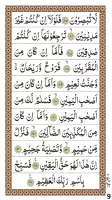 لَّا تُبْصِرُونَ ۝ فَلَوْلَا إِن كُنتُمْ غَيْرَ
مَدِينِينَ ۝ تَرْجِعُونَهَا إِن كُنتُمْ
صَٰدِقِينَ ۝ فَأَمَّا إِن كَانَ مِنَ
ٱلْمُقَرَّبِينَ ۝ فَرَوْحٌ وَرَيْحَانٌ
وَجَنَّتُ نَعِيمٍ ۝ وَأَمَّا إِن كَانَ مِنْ
أَصْحَٰبِ ٱلْيَمِينِ ۝ فَسَلَٰمٌ لَّكَ مِنْ
أَصْحَٰبِ ٱلْيَمِينِ ۝ وَأَمَّا إِن كَانَ
مِنَ ٱلْمُكَذِّبِينَ ٱلضَّآلِّينَ ۝ فَنُزُلٌ
مِّنْ حَمِيمٍ ۝ وَتَصْلِيَةُ جَحِيمٍ ۝
إِنَّ هَٰذَا لَهُوَ حَقُّ ٱلْيَقِينِ ۝ فَسَبِّحْ
بِٱسْمِ رَبِّكَ ٱلْعَظِيمِ ۝